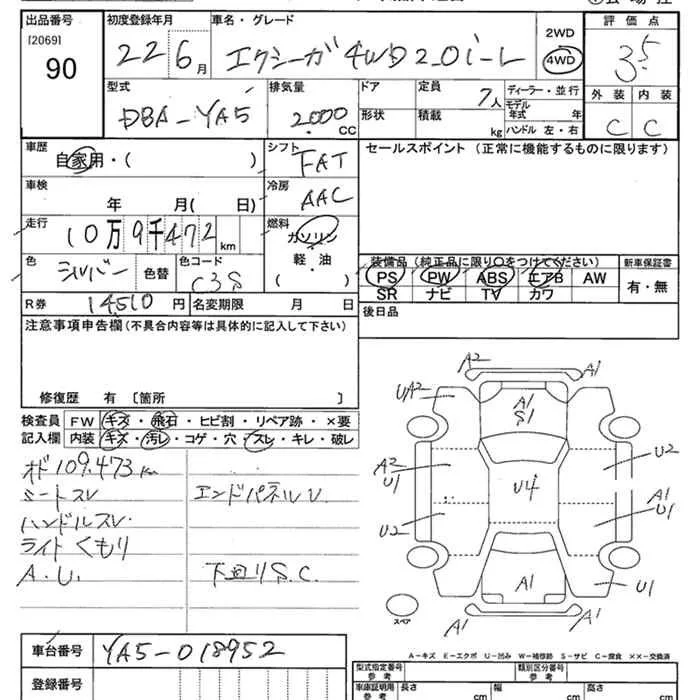 出品番号
[2069]
90
初度登録年月
22 6月
車名・グレード
エクシーガ 4WD 2.0i-L
2WD
4WD
評価点
3.5
外装 内装
C C
型式
DBA-YA5
排気量
2000
CC
ドア
形状
定員
7人
積載
kg
ディーラー・並行
モデル
年式 年
ハンドル 左・右
車歴
自家用・( )
シフト
FAT
セールスポイント (正常に機能するものに限ります)
車検
年 月( 日)
冷房
AAC
走行
10万9千472km
燃料
ガソリン
軽・油
( )
色
シルバー
色替
色コード
C3S
装備品(純正品に限り〇をつけてください)
PS PW ABS エアB AW
SR ナビ TV カワ
新車保証書
有・無
R券
14510円
名変期限 月 日
後日品
注意事項申告欄(不具合内容等は具体的に記入して下さい)
修復歴 有 〔箇所 〕
検査員
記入欄
FW キズ・飛石・ヒビ割・リペア跡・×要
内装 キズ・汚レ・コゲ・穴・スレ・キレ・破レ
オド109.473km
シートスレ
ハンドルスレ.
ライトくもり
A.U.
エンドパネルU
下回りS.C.
A2
A1
UA2
A1
S1
A2
U1
U2
U4
U2
A1
U1
A1
U1
A1
A1
スペア
A-キズ E-エクボ U-凹み W-補修跡 S-サビ C-腐食 XX-交換済
車台番号
YA5-018952
登録番号
型式指定番号
参考
類別区分番号
参考
車庫証明用
参考
長さ
cm
幅
cm
高さ
cm